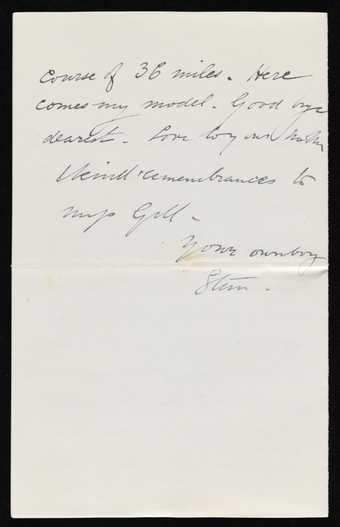 course of 36 miles. Here
comes my model. Good bye
dearest. Love to your mother
& kind remembrances to
miss Gill.
Your own boy